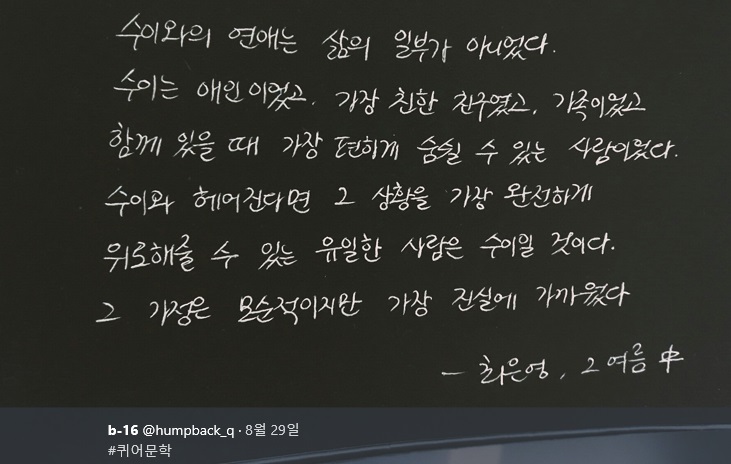 수이와의 연애는 삶의 일부가 아니었다.
수이는 애인이었고, 가장 친한 친구였고, 가족이었고
함께 있을 때 가장 편하게 숨쉴 수 있는 사람이었다.
수이와 헤어진다면 그 상황을 가장 완전하게
위로해줄 수 있는 유일한 사람은 수이일 것이다.
그 가정은 모순적이지만 가장 진실에 가까웠다
- 최은영, 그 여름 中
b-16 @humpback_q · 8월 29일
#퀴어문학